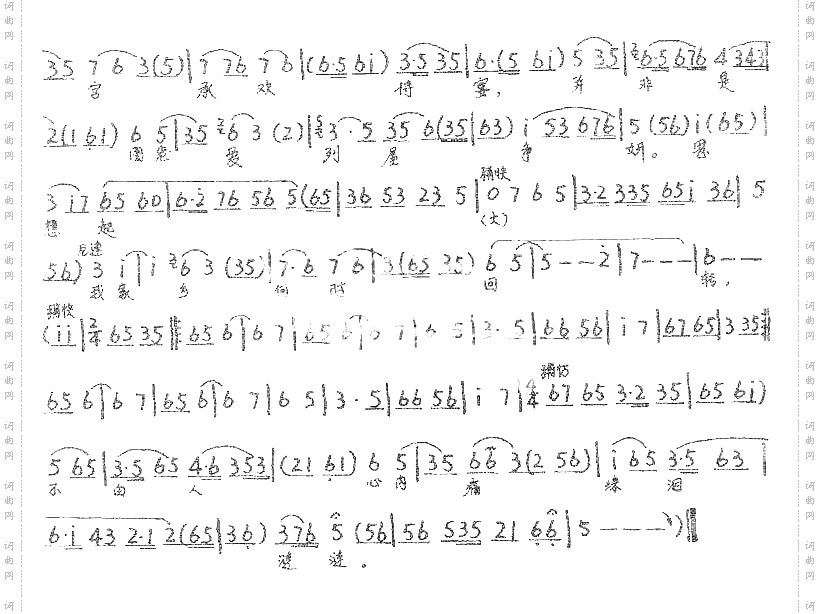 35 7 6 3(5)| 7 76 7 6 |(6·5 6i) 3·5 35|6·(5 6i) 5 35|6·5 676 4 343|
宫 承 欢 侍 宴, 并 非 是
2(1 61) 6 5|35 6 3 (2)|3·5 35 6(35|63) i 53 676|5 (56) i (65)|
图 恩 爱 列 屋 争 妍。 思
3 i7 65 60|6·2 76 56 5(65|36 53 23 5|0 7 6 5|3·2 335 65i 36|5
稍快
想 起 (大)
56) 3 i|i 6 3 (35)|7·6 7 6|3(65 35) 6 5|5 - - 2|7 - - -|6 - -
我 家 乡 何 时 回 转,
稍快
(ii|2/4 65 35|65 6|6 7|65 6|6 7|6 5|3·5|66 56|i 7|67 65|3 35
65 6|6 7|65 6|6 7|6 5|3·5|66 56|i 7|4/4 67 65 3·2 35|65 6i)
5 65|3·5 65 4·6 353|(21 61) 6 5|35 66 3(2 56)|i 65 3·5 63|
不 由 人 心 内 痛 泪
6·i 43 2·1 2(65|36) 376 5 (56|56 535 21 66|5 - - - )
涟 涟。
词曲网